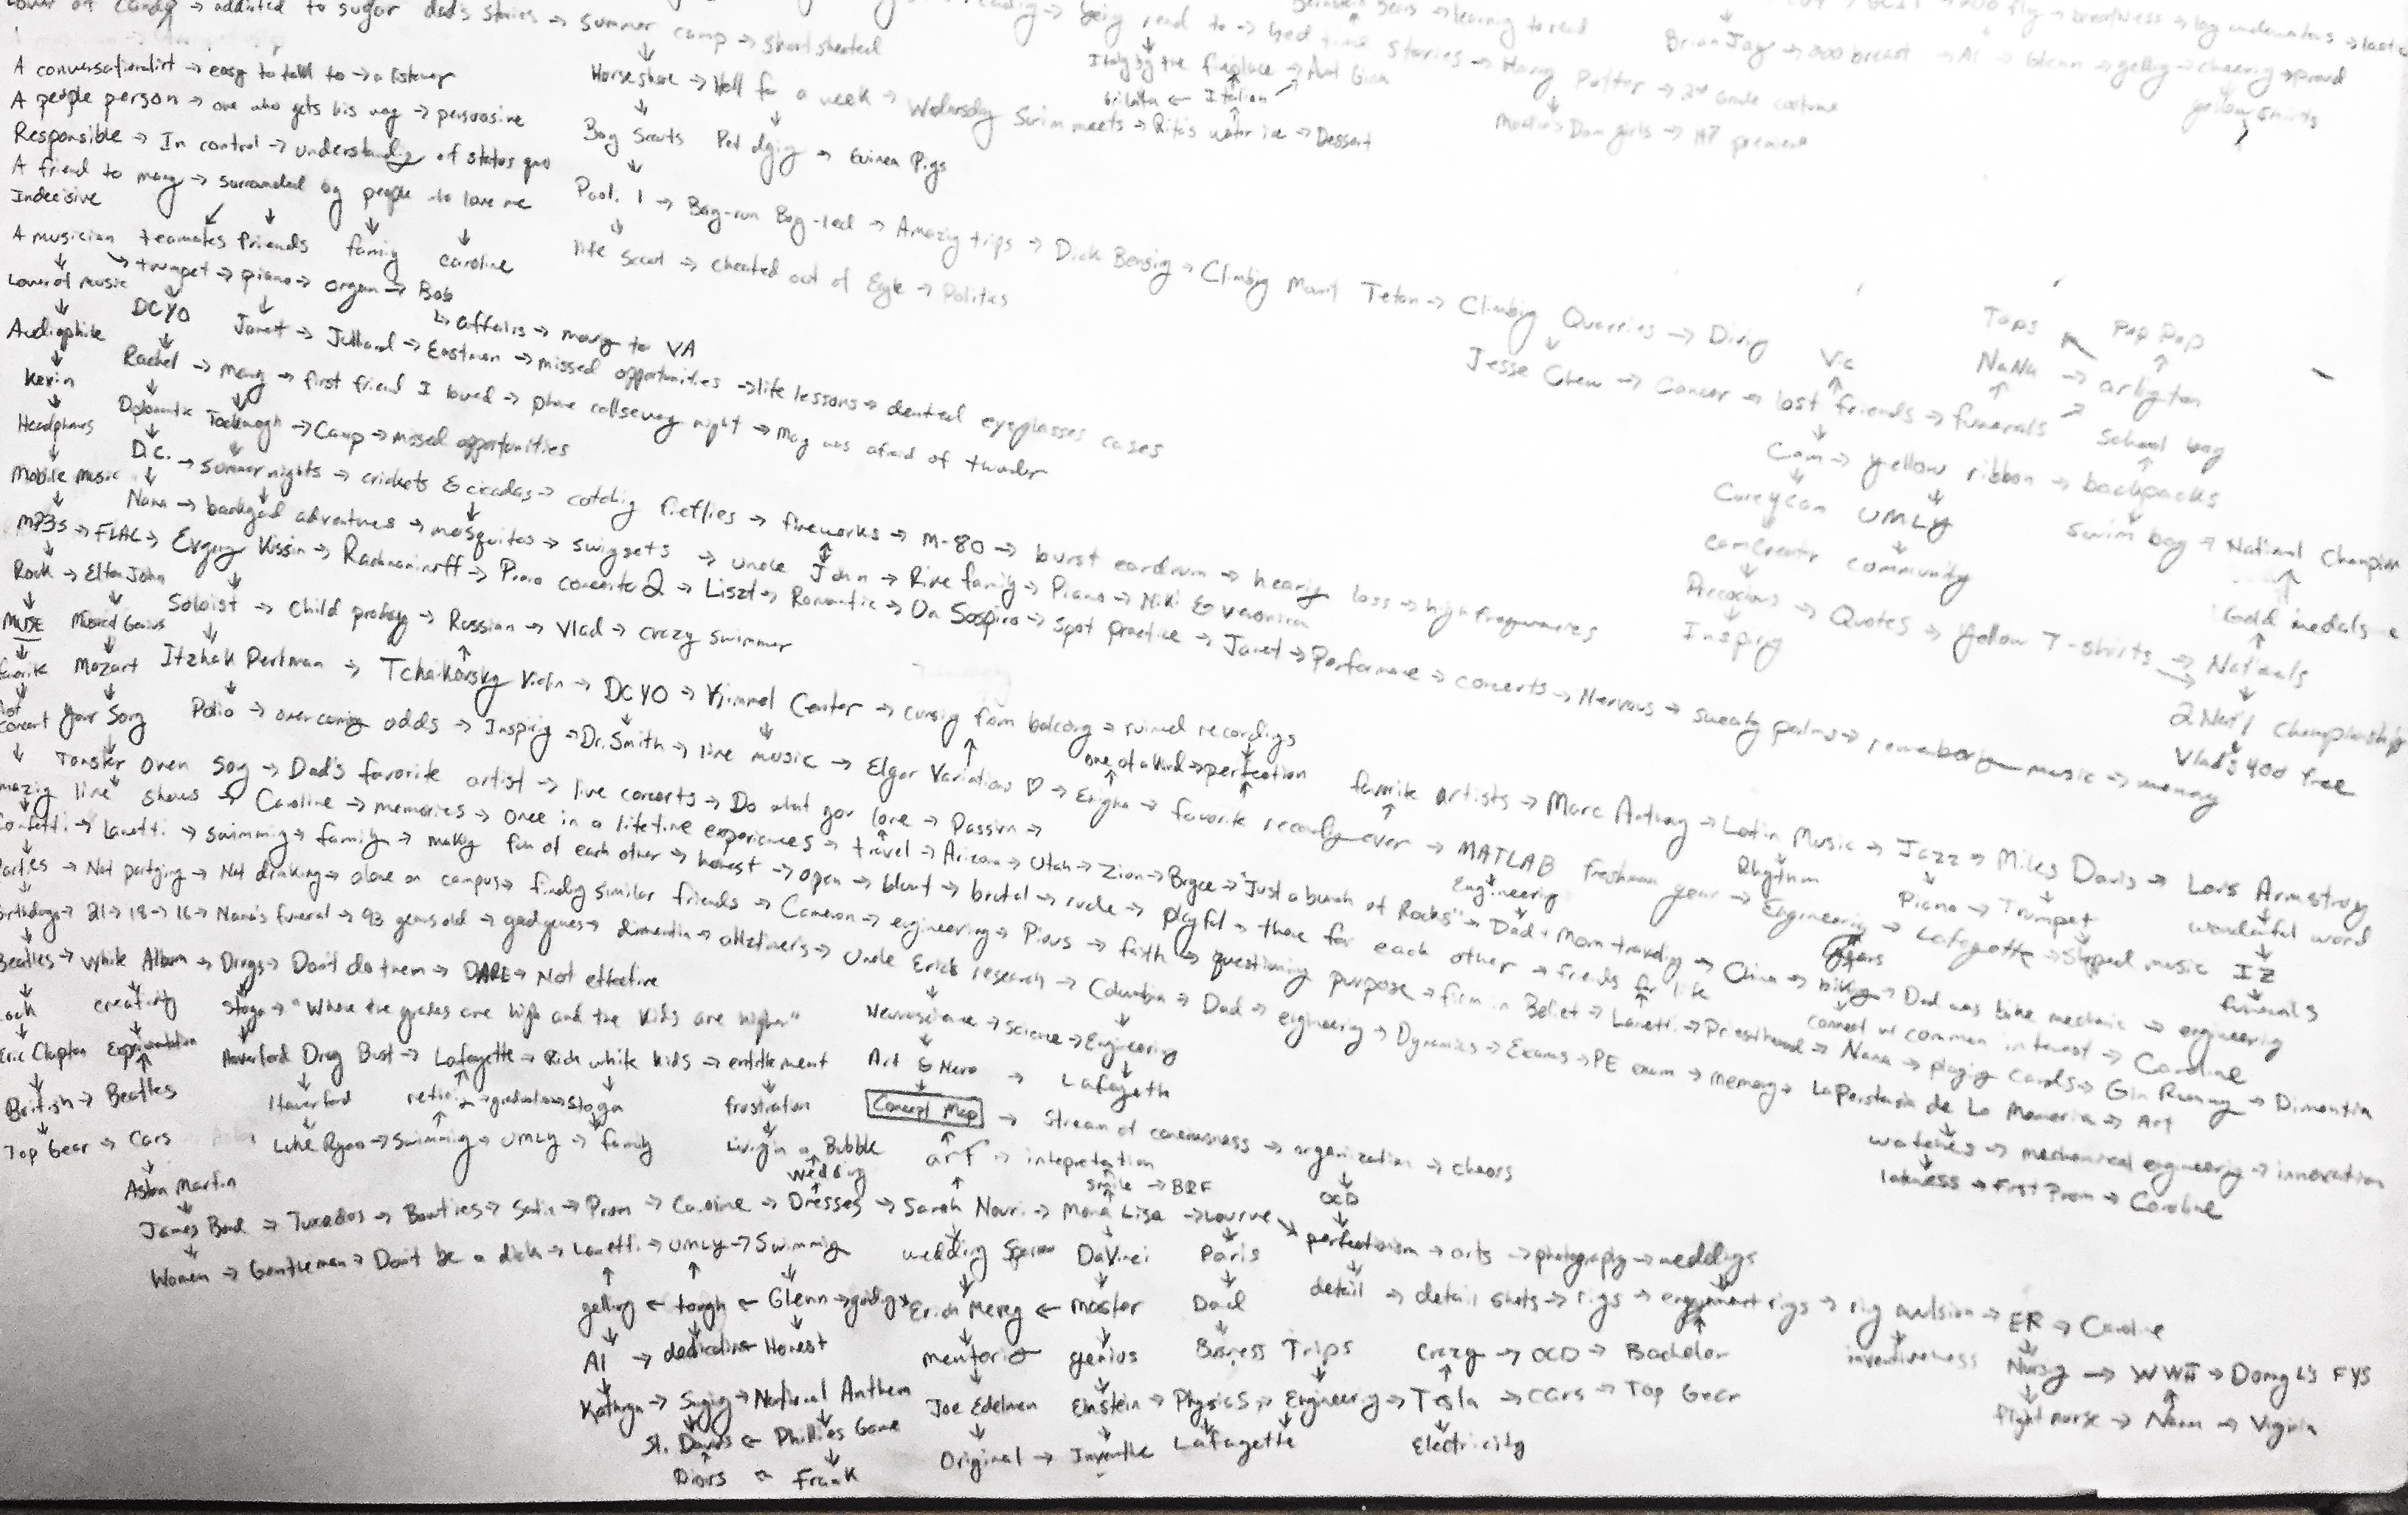 Lover of Candy → addicted to sugar dad's stories → summer camp → short sheeted
being read to → bed time stories → Harry Potter → 2nd Grade costume
learning to read
Brian Jay → 200 breast → Al → Glenn → yelling → cheering → proud
yellow shirts
A conversationalist → easy to talk to → a listener
Horseshoe → Hell for a week → Wednesday Swim meets → Rita's water ice → Dessert
Italy by the fireplace → Aunt Gina
← Italian
A people person → one who gets his way → persuasive
Boy Scouts Pet dying → Guinea Pigs
Responsible → In control → understanding of status quo
A friend to many → surrounded by people who love me
Pool. 1 → Boy-run Boy-led → Amazing trips → Dick Bensing → Climbing Mount Teton → Climbing Quarries → Diving
Indecisive
A musician teamates friends family caroline
life scout → cheated out of Eagle → Politics
Lover of music → trumpet → piano → organ → Bob
↳ affairs → moving to VA
Audiophile DCYO Janet → Julliard → Eastman → missed opportunities → life lessons → dented eyeglasses cases
Jesse Chew → Cancer → lost friends → funerals
Vic NaNa → arlington
Taps Pop Pop
Kevin Rachel → many → first friend I loved → phone calls every night → May was afraid of thunder
Headphones Diplomatic Tockwogh → Camp → missed opportunities
Cam → yellow ribbon → backpacks
School bag
Mobile Music D.C. → summer nights → crickets & cicadas → catching fireflies → fireworks → M-80 → burst eardrum → hearing loss → high frequencies
CureyCam UMLY swim bag → National Champion
Nana → backyard adventures → mosquitos → swiggets → uncle John → Rine family → Piano → Niki & Veronica
community
MP3s → FLAC → Evgeny Kissin → Rachmaninoff → Piano concerto 2 → Liszt → Romantic → Un Sospiro → spot practice → Janet → Performance → concerts → Nervous → sweaty palms → remembering music → memory
Precocious → Quotes → Yellow T-shirts → Nationals
Gold medals
Inspiring
Rock → Elton John Soloist → Child prodigy → Russian → Vlad → crazy swimmer
2 Nat'l Championship
Vlad's 400 free
MUSE Musical Genius
favorite Mozart Itzhak Perlman → Tchaikovsky Violin → DCYO → Kimmel Center → cursing from balcony → ruined recordings
concert Your Song Polio → overcoming odds → Inspiring → Dr. Smith → live music → Elgar Variations ♡ → Enigma → favorite recording ever → MATLAB freshman year → Engineering → Lafayette → Stopped music
one of a kind → perfection
favorite artists → Marc Anthony → Latin Music → Jazz → Miles Davis → Louis Armstrong
Engineering Rhythm Piano → Trumpet wonderful world
Toaster Oven Song → Dad's favorite artist → live concerts → Do what you love → Passion →
amazing live shows → Caroline → memories → once in a lifetime experiences → travel → Arizona → Utah → Zion → Bryce → "Just a bunch of Rocks" → Dad + Mom traveling → China → biking → Dad was bike mechanic → engineering
IZ funerals
Confetti → Lanetti → swimming → family → making fun of each other → honest → open → blunt → brutal → rude → playful → there for each other → friends for life
connect w/ common interest → Caroline
Parties → Not partying → Not drinking → alone on campus → finding similar friends → Cameron → engineering → Pious → faith → questioning purpose → firm in Belief → Lanetti → Priesthood → Nana → playing cards → Gin Rummy → Dimentia
Birthdays → 21 → 18 → 16 → Nana's funeral → 93 years old → good genes → dimentia → altzeimers → Uncle Erick research → Columbia → Dad → engineering → Dynamics → Exams → PE exam → memory → La Persistencia de La Memoria → Art
Beatles → White Album → Drugs → Don't do them → DARE → Not effective
creativity Stoga → "Where the grades are high and the kids are higher"
Neuroscience → Science → Engineering
Eric Clapton Experimentation Haverford Drug Bust → Lafayette → Rich white kids → entitlement
Art & Neuro → Lafayette
British → Beatles Haverford → graduation → Stoga frustration
Concept Map → Stream of conciousness → organization → chaos
watches → mechanical engineering → innovation
Top Gear → Cars Luke Ryan → Swimming → UMLY → family Living in a Bubble
art → intepretation
lateness → First Prom → Caroline
Aston Martin wedding smile → BRF OCD
James Bond → Tuxedos → Bowties → Satin → Prom → Caroline → Dresses → Sarah Nouri → Mona Lisa → Lourve → perfectionism → arts → photography → weddings
Women → Gentleman → Don't be a dick → Lanetti → UMLY → Swimming
wedding DaVinci Paris detail → detail shots → rings → engagement rings → ring avulsion → ER → Caroline
yelling ← tough ← Glenn → Erich Merey ← master Dad
Al → dedication Honest mentoring genius Business Trips Crazy → OCD → Bachelor
inventiveness Nursing → WWII → FYS
Kathryn → Singing → National Anthem Joe Edelman Einstein → Physics → Engineering → Tesla → cars → Top Gear
flight nurse → Nana → Virginia
St. Davids ← Phillies Game Original → Inventive Lafayette Electricity
← Frank